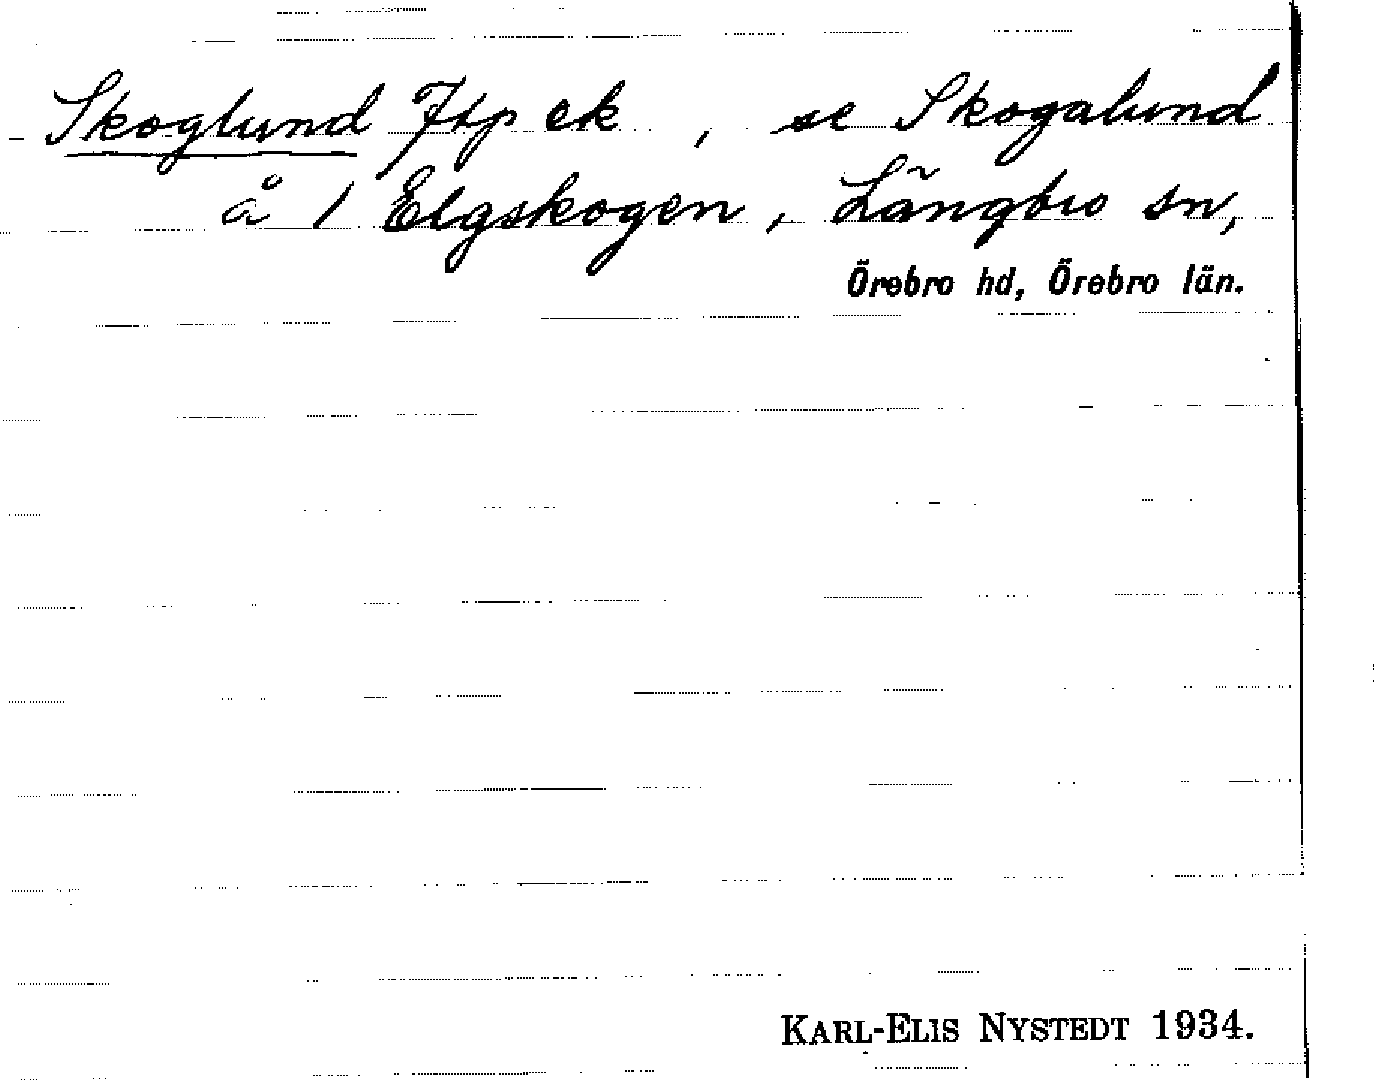 Skoglund Jtp ek, se Skogalund
å 1 Elgskogen, Längbro sn,
Örebro hd, Örebro län.
KARL-ELIS NYSTEDT 1934.